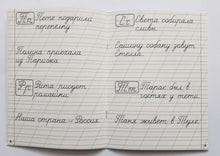 Пп Пете подарили
черепаху.
Полина приехала
из Парижа.
Рр Рита рисует
ромашки.
Наша страна - Россия.
Сс Света собирала
сливы.
Сашину собаку зовут
Стелла.
Тт Тарас был в
гостях у тети.
Таня живет в Туле.